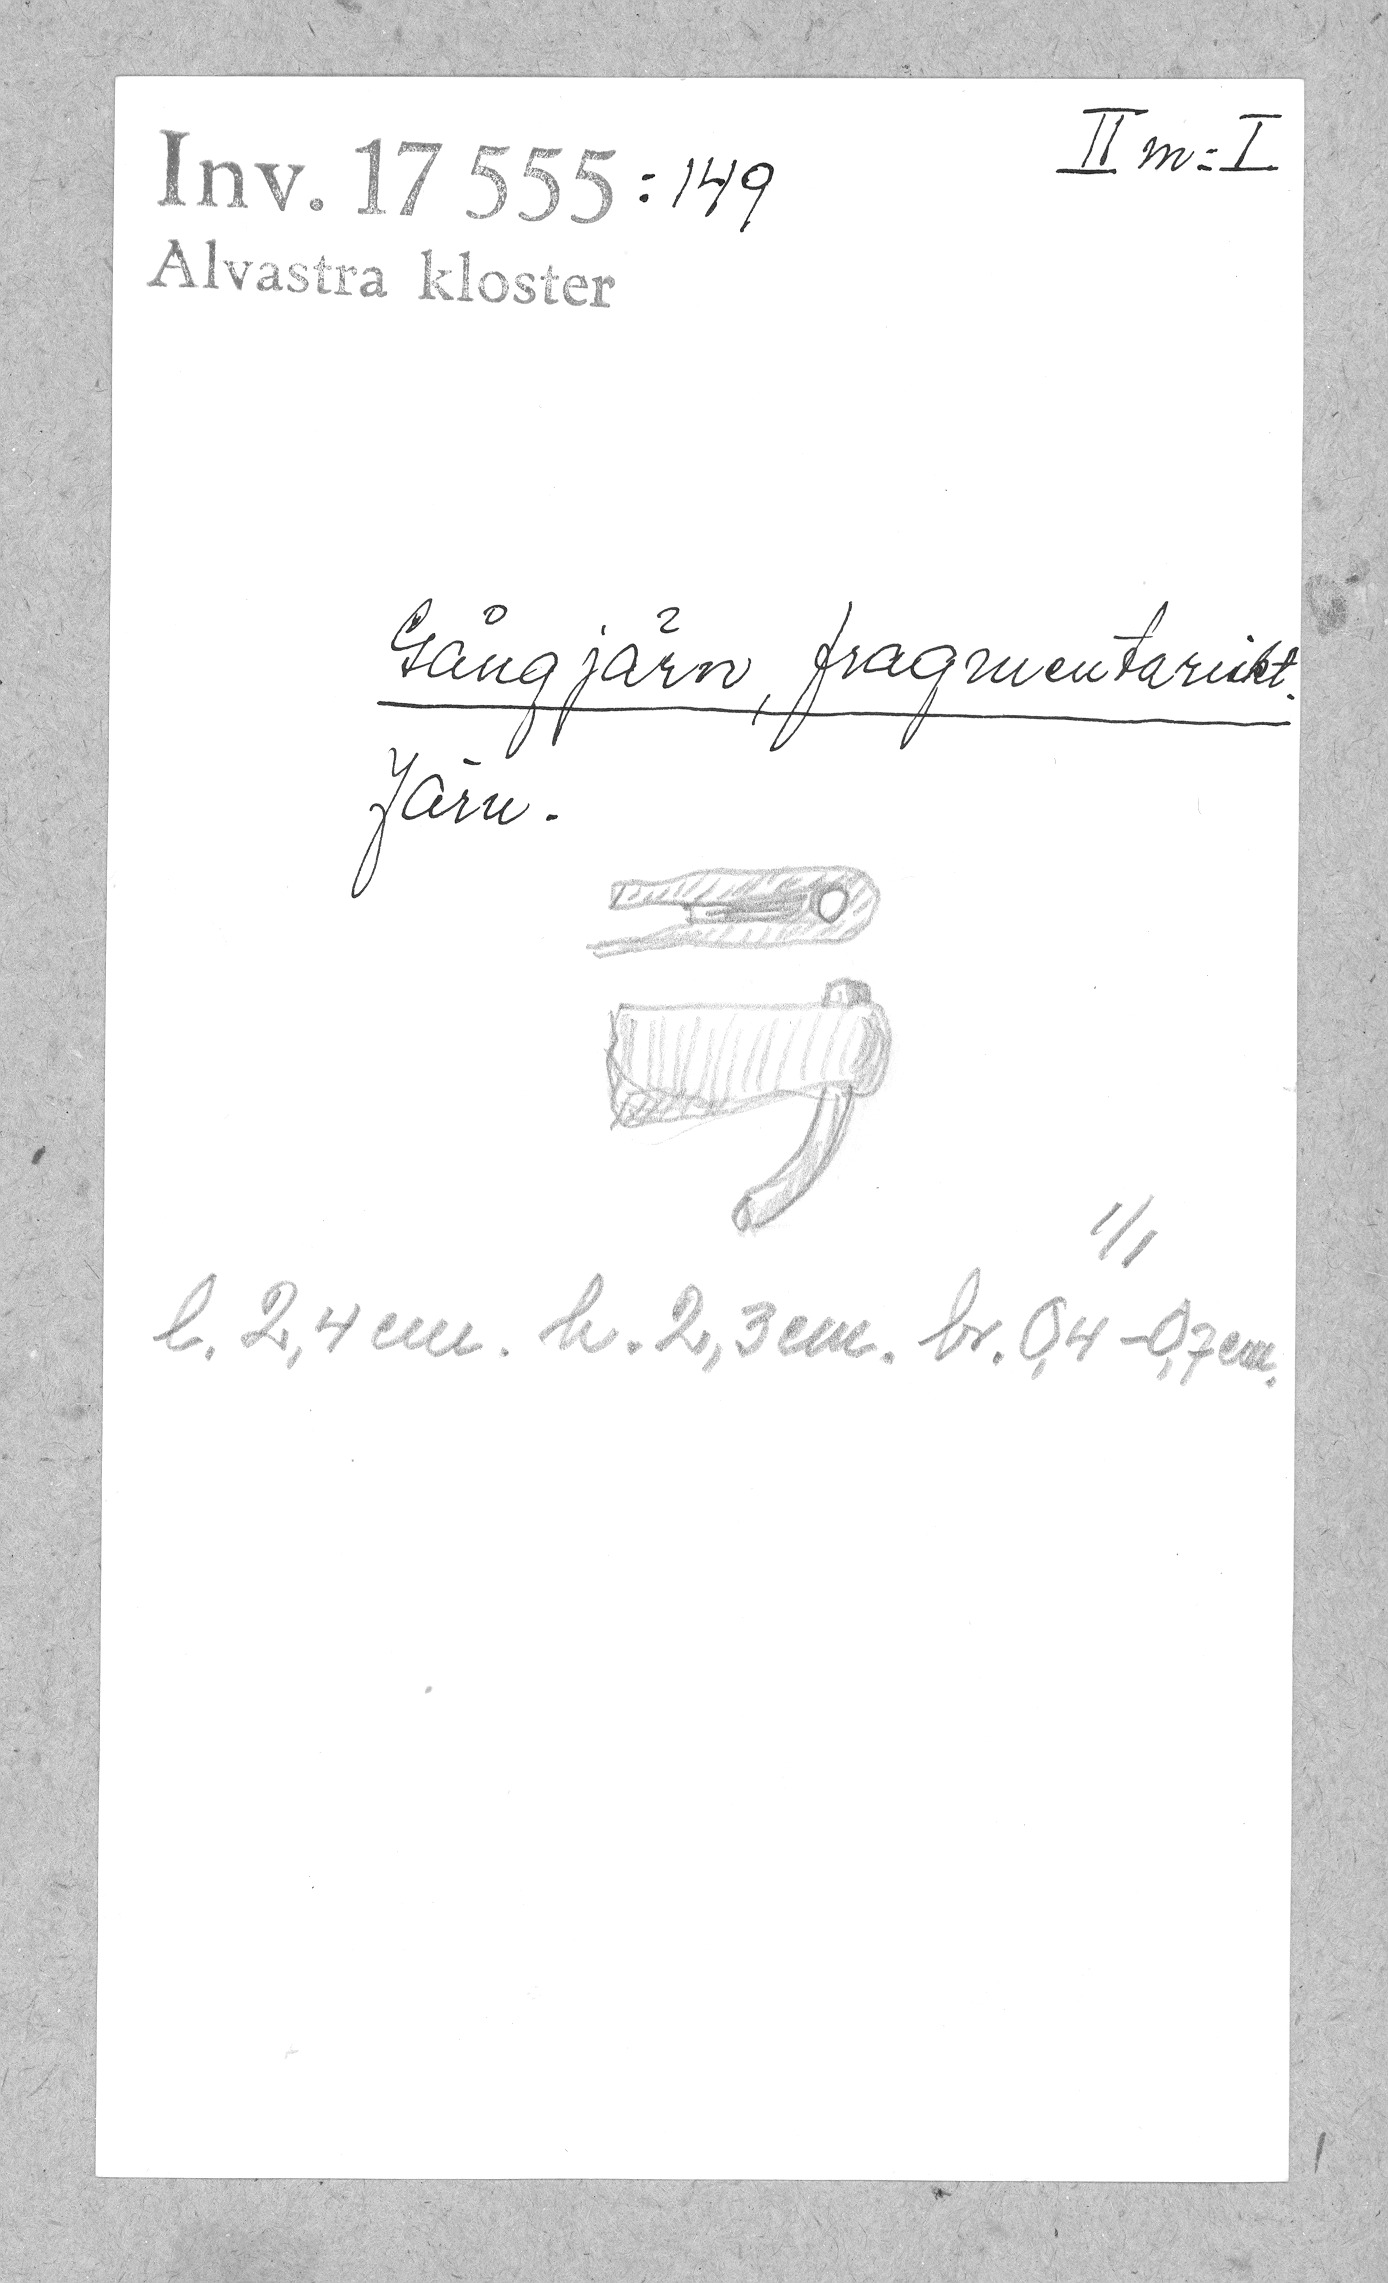 Inv. 17 555 : 149
II m: I
Alvastra kloster
Gångjärn, fragmentariskt.
Järn.
1/1
l. 2,4 cm. h. 2,3 cm. br. 0,4-0,7 cm.